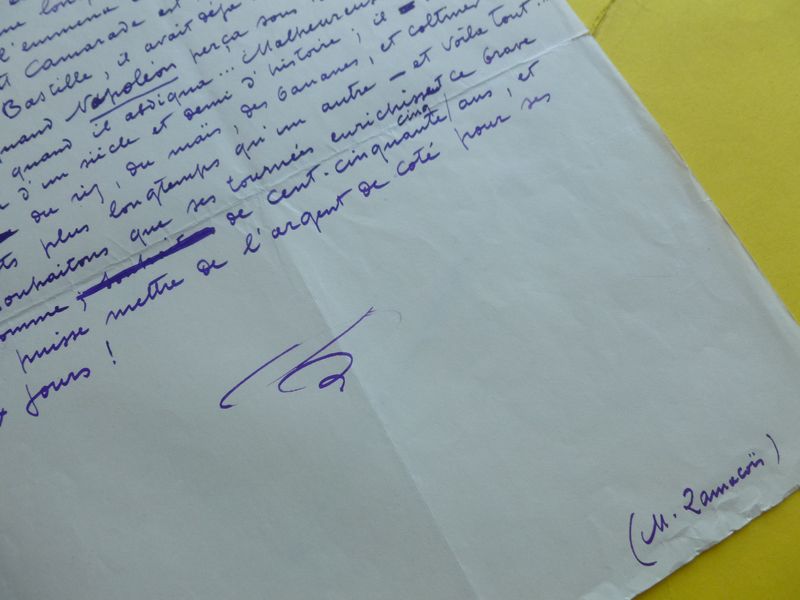 l'emmena
Camarade et
Bastille, il avait déjà
quand Napoléon perça sous
quand il abdiqua... Malheureus
d'un siècle et demi d'histoire ; il
du riz, du maïs, des bananes, et coltiner
plus longtemps qu'un autre — et voilà tout...
ouhaitons que ses tournées enrichissent ce brave
omme, de cent-cinquante cinq ans, et
puisse mettre de l'argent de coté pour ses
x jours !
(M. Zamacoïs)